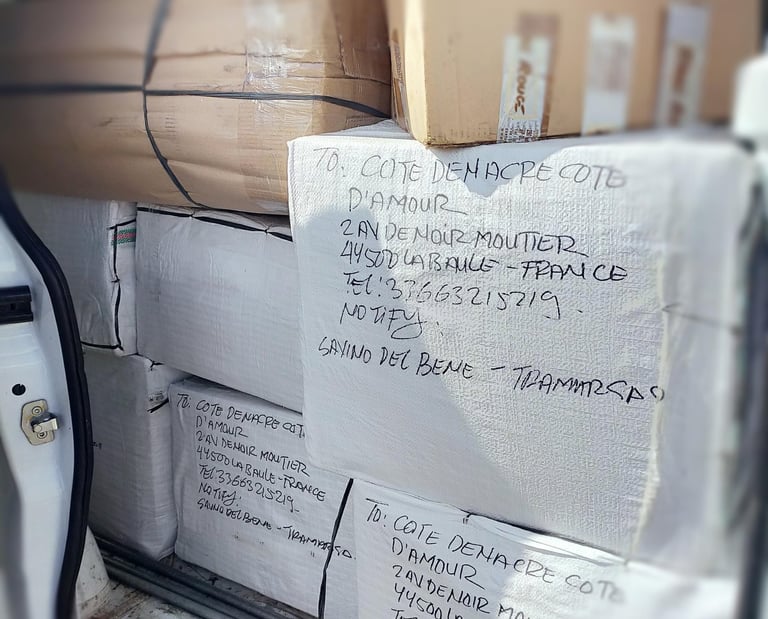 ROUGE
TO: COTE DENACRE COTE
D'AMOUR
2 AV DE NOIR MOUTIER
44500 LA BAULE - FRANCE
TEL: 33663215219.
NOTIFY.
SAVINO DEL BENE - TRAMARSAS
TO: COTE DENACRE COTE
D'AMOUR
2 AV DE NOIR MOUTIER
44500 LA BAULE - FRANCE
TEL: 33663215219-
NOTIFY.
SAVINO DEL BENE - TRAMARSAS
TO: COTE DENACRE COTE
D'AMOUR
2 AV DE NOIR MOU
44500 LA